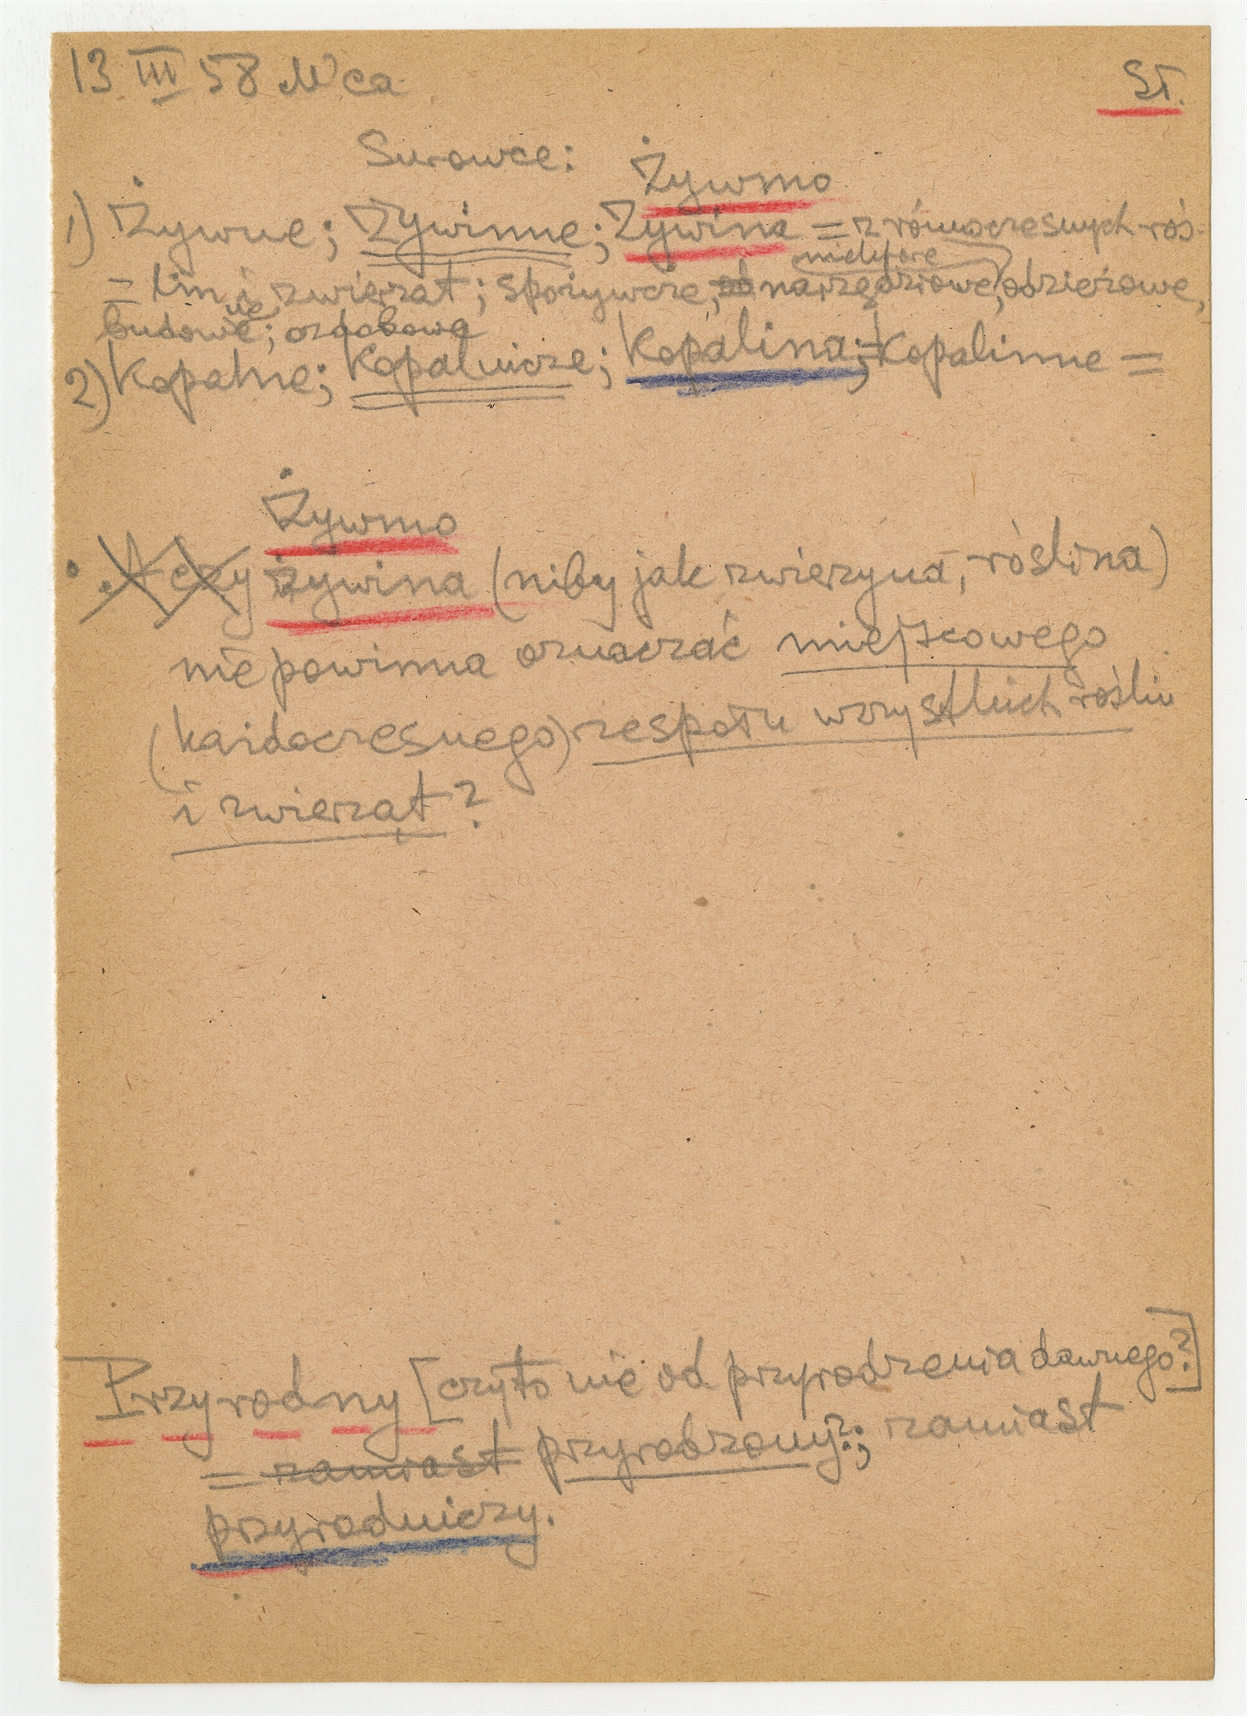 13 III 58 Wca
St.
Surowce:
Żywmo
1) Żywne; Żywinne; Żywina = z równoczesnych roś-
= lin i zwierząt; spożywcze, narzędziowe, odzieżowe,
budowlane; ozdobowe
2) Kopalne; Kopalnicze; Kopalina; Kopalinne =
Żywmo
A czy żywina (niby jak zwierzyna, roślina)
nie powinna oznaczać miejscowego
(każdoczesnego) zespołu wszystkich roślin
i zwierząt?
Przyrodny [czyto nie od przyrodzenia dawnego?]
= zamiast przyrodzony?; zamiast
przyrodniczy.